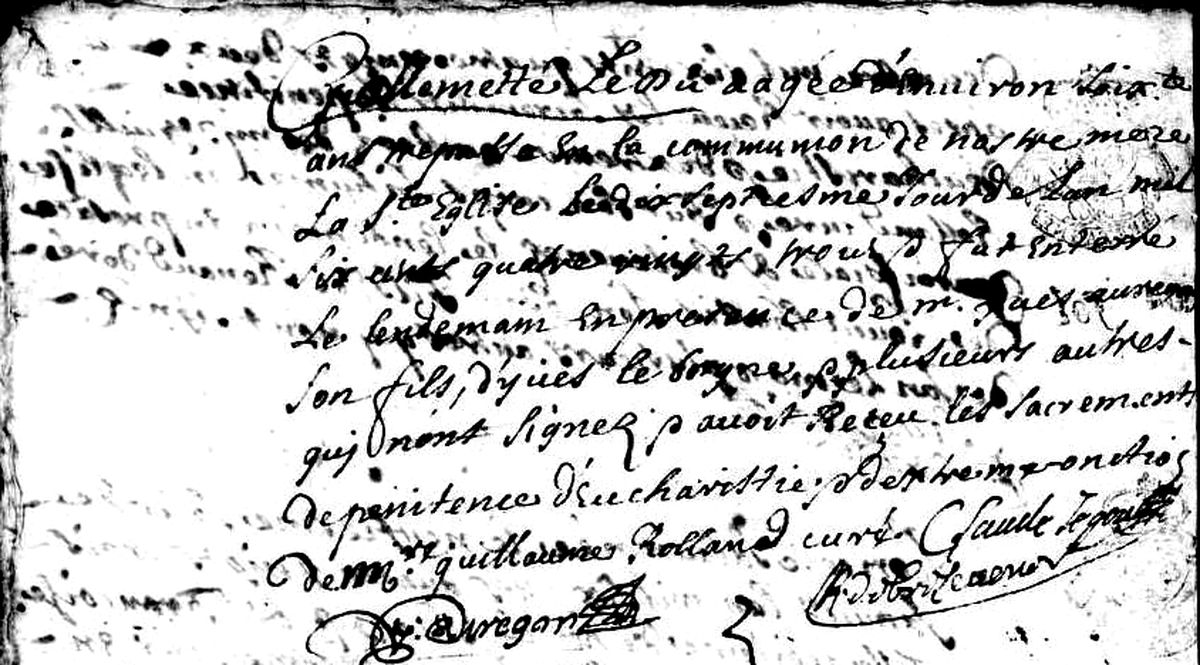 Guillemette Le Du aagée d'environ soix.te
ans trepassa En la communion de nostre mere
La S.te Eglise le dix septiesme Jour de Lan mil
six cents quatre vingts trois & fut Enterré
Le lendemain En presence de m. yues auregan
son fils, d'yues le borgne, & plusieurs autres
qui n'ont signez & auoit Receu les sacrements
de penitence d'Eucharistie & d'extreme onction
De Mis.re guillaume Rolland curé. Claude
Y: Auregan